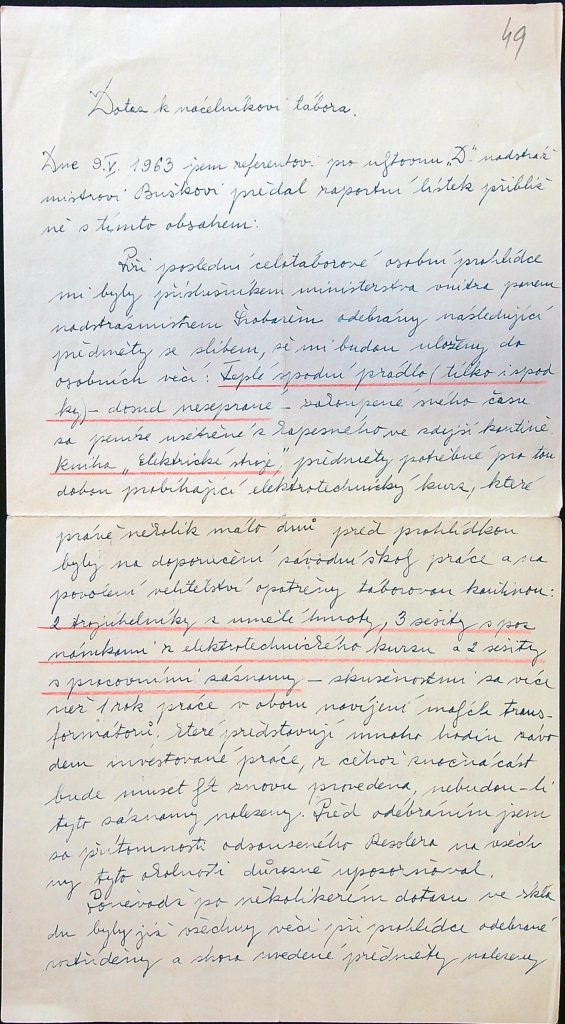 49
Dotaz k náčelníkovi tábora.
Dne 9.V. 1963 jsem referentovi pro ubytovnu „D" nadstráž
mistrovi Buškovi předal raportní lístek přibliž
ně s tímto obsahem:
Při poslední celotáborové osobní prohlídce
mi byly příslušníkem ministerstva vnitra panem
nadstrážmistrem Šrobarém odebrány následující
předměty se slibem, že mi budou uloženy do
osobních věcí: Teplé spodní prádlo (tílko i spod
ky) – dosud neseprané – zakoupené svého času
za peníze ušetřené z kapesného ve zdejší kantině.
Kniha „Elektrické stroje", předměty potřebné pro tou
dobou probíhající elektrotechnický kurs, které
právě několik málo dnů před prohlídkou
byly na doporučení závodní školy práce a na
povolení velitelství opatřeny táborovou kantinou:
2 trojúhelníky z umělé hmoty, 3 sešity s poz
námkami z elektrotechnického kursu a 2 sešity
s pracovními záznamy – zkušenostmi za více
než 1 rok práce v oboru navíjení malých trans-
formátorů, které představují mnoho hodin závo
dem investované práce, z čehož značná část
bude muset být znovu provedena, nebudou-li
tyto záznamy nalezeny. Před odebráním jsem
za přítomnosti odsouzeného Resslera na všech
ny tyto okolnosti důrazně upozorňoval.
Poněvadž po několikerém dotazu ve skla
du byly již všechny věci při prohlídce odebrané
roztříděny a shora uvedené předměty nalezeny